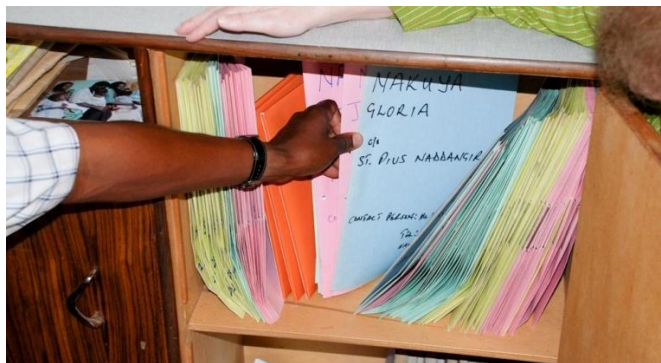 NAKUYA
GLORIA
c/o
ST. PIUS NADDANGIR
CONTACT PERSON: